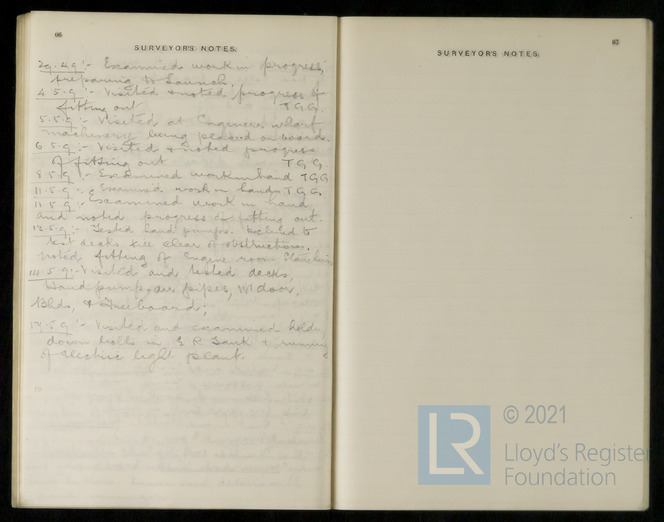 66
SURVEYOR'S NOTES.
29.4.9:- Examined work in progress,
preparing to Launch.
4.5.9:- Visited & noted progress of
fitting out T.G.G.
5.5.9:- Visited at Engineers wharf
machinery being placed on board.
6.5.9:- Visited & noted progress
of fitting out T.G.G.
8.5.9:- Examined work in hand T.G.G
11.5.9:- Examined work in hand T.G.G.
11.5.9:- Examined work in hand
and noted progress of fitting out.
12.5.9:- Tested hand pumps. Declined to
test decks till clear of obstructions.
Noted fitting of Engine room
14.5.9:- Visited and tested decks,
Hand pump, air pipes, WT door,
Blds, & Freeboard;
17.5.9:- Visited and examined holding
down bolts in E R Tank & running
of electric light plant.
67
SURVEYOR'S NOTES.
LR
© 2021
Lloyd's Register
Foundation